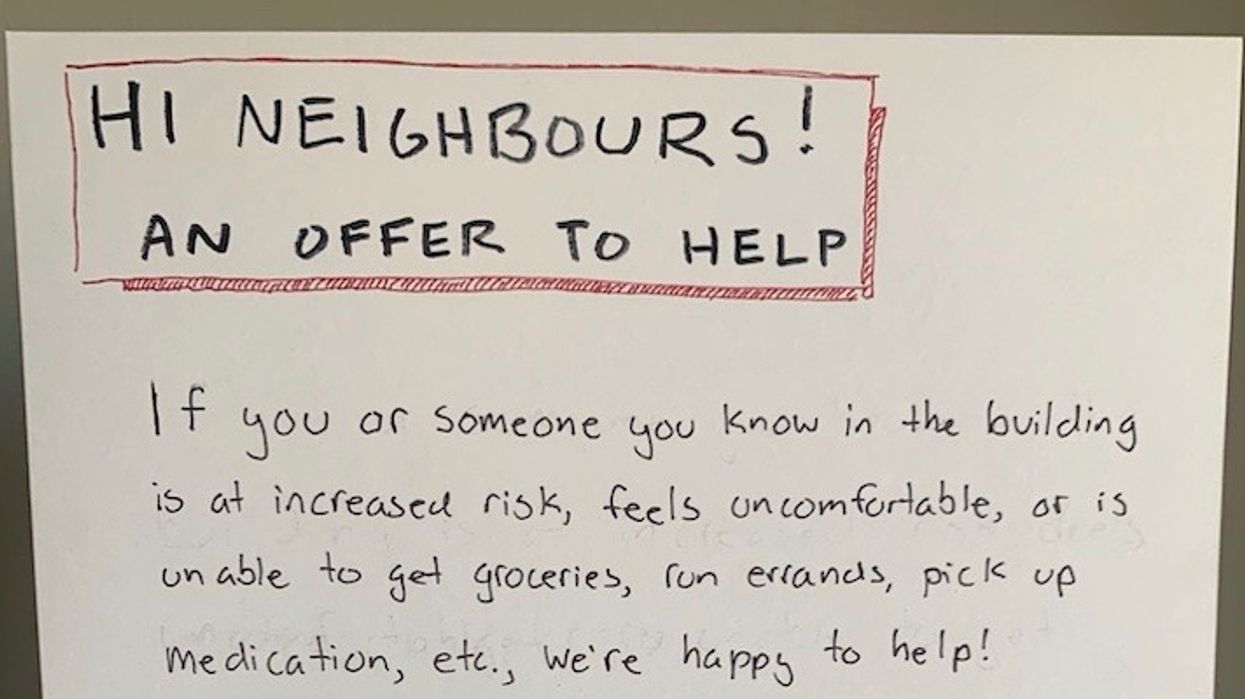 HI NEIGHBOURS!
AN OFFER TO HELP
If you or someone you know in the building
is at increased risk, feels uncomfortable, or is
unable to get groceries, run errands, pick up
medication, etc., we're happy to help!